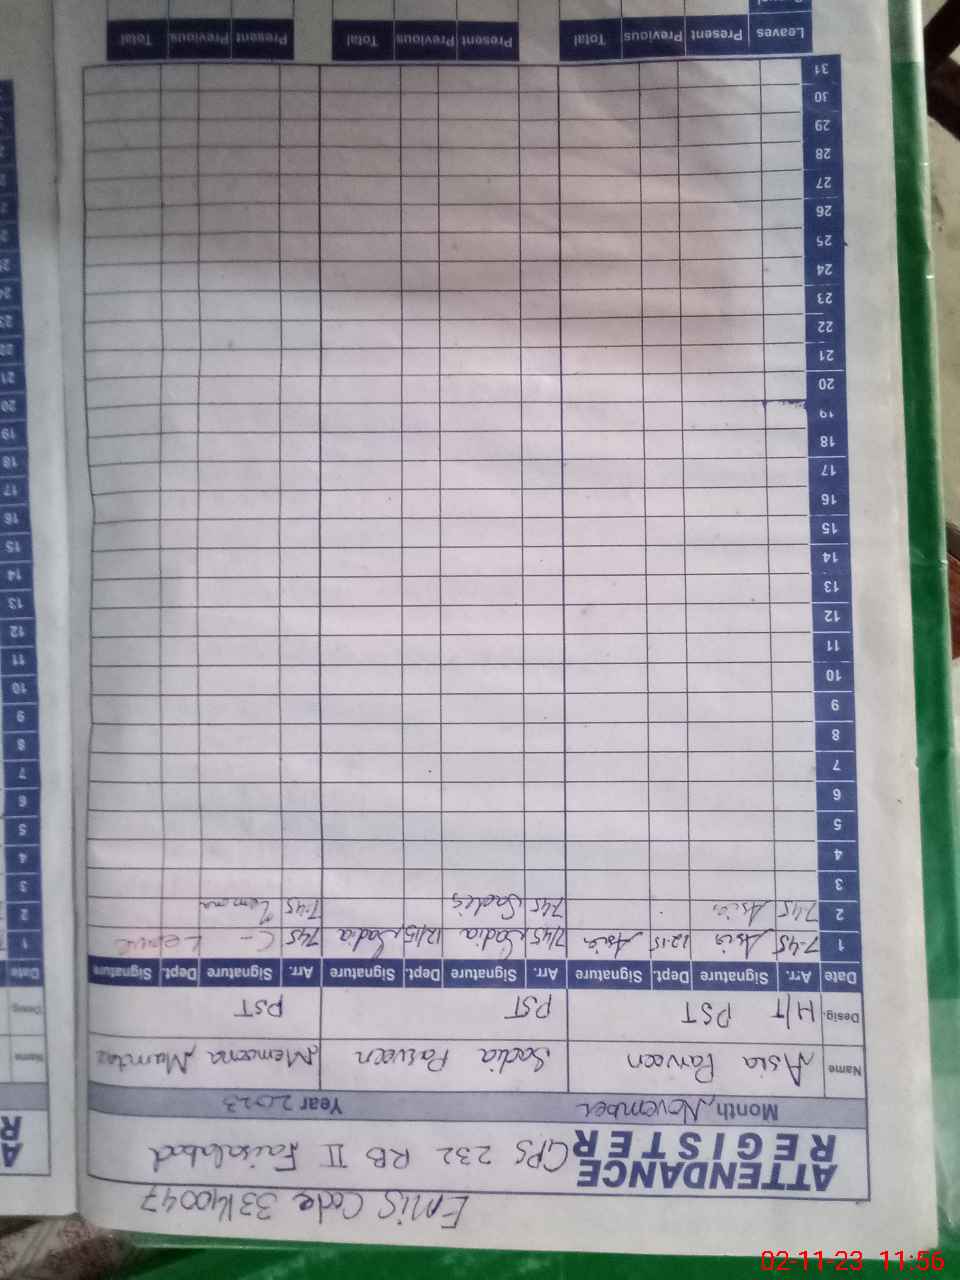 EMIS Code 33140047
ATTENDANCE REGISTER GPS 232 RB II Faisalabad
Month, November Year 2023
Name Asia Parveen Sadia Parveen Memoona Mumtaz
Desig. H/T PST PST PST
Date Arr. Signature Dept. Signature Arr. Signature Dept. Signature Arr. Signature Dept. Signature
1 7:45 Asia 12:15 Asia 7:45 Sadia 12:15 Sadia 7:45 C- Leave
2 7:45 Asia 7:45 Sadia 7:45
3
4
5
6
7
8
9
10
11
12
13
14
15
16
17
18
19
20
21
22
23
24
25
26
27
28
29
30
31
Leaves Present Previous Total Present Previous Total Present Previous Total
Date
1
2
3
4
5
6
7
8
9
10
11
12
13
14
15
16
17
18
19
20
21
22
02-11-23 11:56